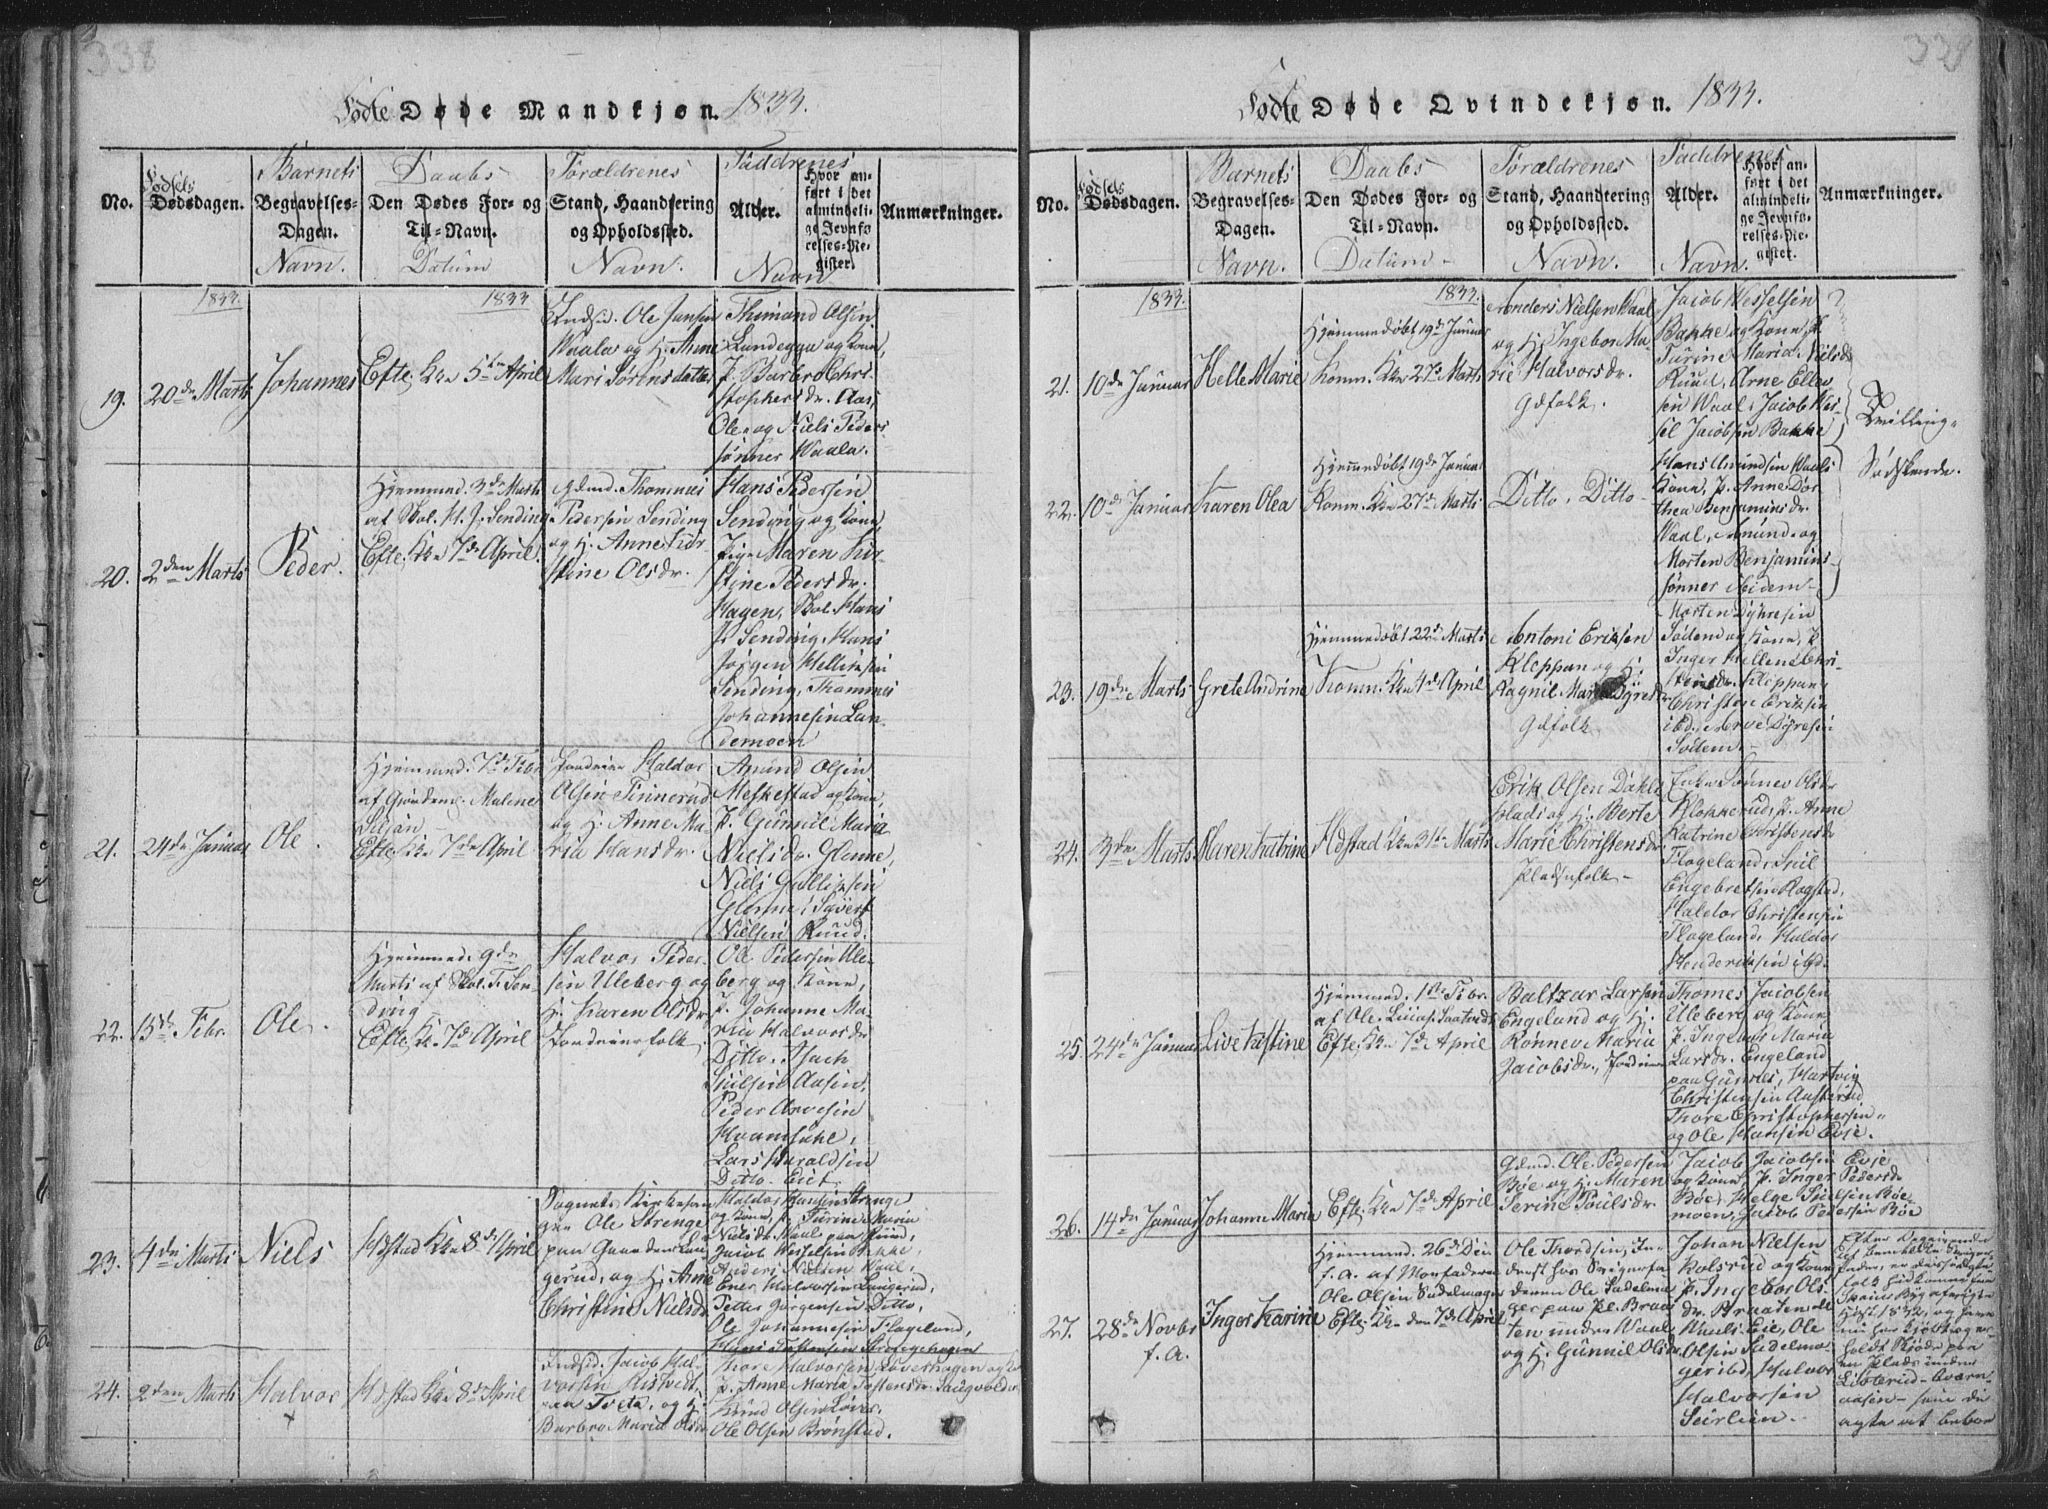 338
Fødte Døde Mandkjøn. 1833.
No.
Fødsels
Dødsdagen.
Barnets
Begravelses-
Dagen.
Navn.
Daabs
Den Dødes For- og
Til-Navn.
Datum
Forældrenes
Stand, Haandtering
og Opholdssted.
Navn.
Faddrenes
Alder.
Navn.
Hvor an-
ført i det
almindeli-
ge Jevnfø-
relses-Re-
gister.
Anmærkninger.
19.
1833.
20de Marts
Johannes
1833
Efte. Kke 5te April
Indsid. Ole Jensen
Waala og H. Anne
Mari Sørensdatter
Thimand Olsen
Lundeqya og Kone,
P. Barbro Chri-
stophersdr. Aas,
Ole og Niels Peders
sønner Waala.
20.
2den Marts
Peder.
Hjemmed. 3de Marts
af Skol. H. J. Sending
Efte. Kke 7de April.
Gdmd. Thommes
Pedersen Sending
og H. Anne Kir
stine Olsdr.
Hans Pedersen
Sending og Kone,
Pige Maren Kir-
stine Pedersdr.
Hagen, Skol. Hans
J. Sending, Hans
Jørgen Helliksen
Sending, Thommes
Johannesen Lan-
demoen
21.
24de Januar
Ole.
Hjemmed. 7de Febr.
af Gjordem. Malene
Siljan
Efte. Kke 7de April
Jordeier Haldor
Olsen Tinnerud
og H. Anne Ma-
ria Hansdr.
Amund Olsen
Meskestad og Kone,
P. Gunnil Maria
Nielsdr. Glenne,
Niels Gulliksen
Glenne, Syvert
Nielsen Ruud.
22.
15de Febr.
Ole.
Hjemmed. 9de
Marts af Skol. T. Sen-
ding
Efte. K. 7de April
Halvor Peder-
sen Uleberg og
H. Karen Olsdr.
Jordeierfolk.
Ole Pedersen Ule-
berg og Kone,
P. Johanne Ma-
ria Halvorsdr.
Ditto, Isach
Sjulsen Aasen,
Peder Arvesen
Hvamsuhl,
Lars Haraldsen
Ditto Eiet.
23.
4de Marts
Niels
Hedstad Kke 8de April
Sognets Kirkesan-
ger Ole Strenge
paa Gaarden Lan-
gerud, og H. Anne
Christine Nielsdr.
Haldor Hansen Strenge
og Kone, P. Turine Maria
Nielsdr. Waal paa Ruud,
Jacob Wesselsen Bakke,
Anders Nielsen Waal,
Ener Halvorsen Langerud,
Petter Jørgensen Ditto,
Ole Johannesen Flageland,
24.
2den Marts
Halvor
Hedstad Kke 8de April
Indsid. Jacob Hal-
vorsen Ristvedt
paa Tveta, og H.
Barbro Maria Olsdr
Thore Halvorsen Løverhagen og Ko
P. Anne Maria Tostensdr. Saugvolden
Knud Olsen Løver
Ole Olsen Brønstad.
339
Fødte Døde Qvindekjøn. 1833.
No.
Fødsels
Dødsdagen.
Barnets
Begravelses-
Dagen.
Navn.
Daabs
Den Dødes For- og
Til-Navn.
Datum
Forældrenes
Stand, Haandtering
og Opholdssted.
Navn.
Faddrenes
Alder.
Navn.
Hvor an-
ført i det
almindeli-
ge Jevnfø-
relses-Re-
gister.
Anmærkninger.
21.
1833.
10de Januar
Helle Marie
1833.
Hjemmedøbt 19de Januar
Komm. Kke 27de Marts
Anders Nielsen Waal
og H. Ingebor Ma-
rie Halvorsdr.
Gdfolk.
Jacob Wesselsen
Bakke og Kone, P.
Turine Maria Nielsdr
Ruud, Arne Ellev
sen Waal, Jacob Wes-
sel Jacobsen Bakke
Tvilling-
Sødskende.
22.
10de Januar
Karen Olea
Hjemmedøbt 19de Januar
Komm. Kke 27de Marts
Ditto. Ditto
Hans Amundsen Waals
Kone, P. Anne Dor
thea Benjaminsdr.
Waal, Amund og
Morten Benjamins-
sønner ibidem
23.
19de Marts
Grete Andrine
Hjemmedøbt 22de Marts
Komm. Kke 4de April
Antoni Eriksen
Kleppan og H.
Ragnil Maria Dyresdr
Gdfolk
Morten Dyresen
Sødem og Kone, P.
Inger Hellene Chri-
stensdr. Kleppan,
Christen Eriksen
ibd., Arve Dyresen
Sødem.
24.
3de Marts
Maren Katrine
Hedstad Kke 31te Marts
Erik Olsen Dahls-
plads og H. Berte
Marie Christensdr
Pladsfolk
Enke Tønnev Olsdr
Klokkerud, P. Anne
Katrine Christensdr
Flageland, Juul
Engebretsen Rogstad,
Haldor Christensen
Flageland, Haldor
Henderiksen ibd.
25.
24de Januar
Live Kistine
Hjemmed. 1ste Febr.
af Ole Lucas. Saatvedt
Efte. Kke 7de April
Baltzar Larsen
Engeland og H.
Rønnev Maria
Jacobsdr., Jordeiere
Thomes Jacobsen
Uleberg og Kone
P. Ingebor Maria
Larsdr. Engeland
paa Gunnes, Hartvig
Christensen Austerud
Thore Christophersen
og Ole Hansen Evje.
26.
14de Januar
Johanne Maria
Efte. Kke 7de April
Gdmd. Ole Pedersen
Bøe og H. Maren
Serine Poulsdr
Jacob Jacobsen Evje
og Kone, P. Inger Pedersdr
Bøe, Helge Sjulsen Bøe-
moen, Jacob Pedersen Bøe
27.
28de Novbr
f. A.
Inger Karine
Hjemmed. 26de Dec.
f. A. af Morfaderen
Ole Olsen Sadelmager
Efte. Kke den 7de April
Ole Thordsen, In-
derst hos Svigerfa
deren Ole Sadelma
ger paa Pl. Braa-
ten under Waal
og H. Gunnil Olsdr
Johan Nielsen
Kolsrud og Kone
P. Ingebor Ols-
dr. Braaten
Waals Eie, Ole
Olsen Sadelma-
geribd., Halvor
Halvorsen
Seirlien.
Efter Opgivende
af bemeldte Sviger-
fader, er disse ægte
folk hidkomne fra
Spans Bygd afvigte
Høst 1832, og have
nu her kjøbt og er-
holdt Skjøde paa
en Plads under
Listerud - Qværn-
aasen - som de
agte at beboe